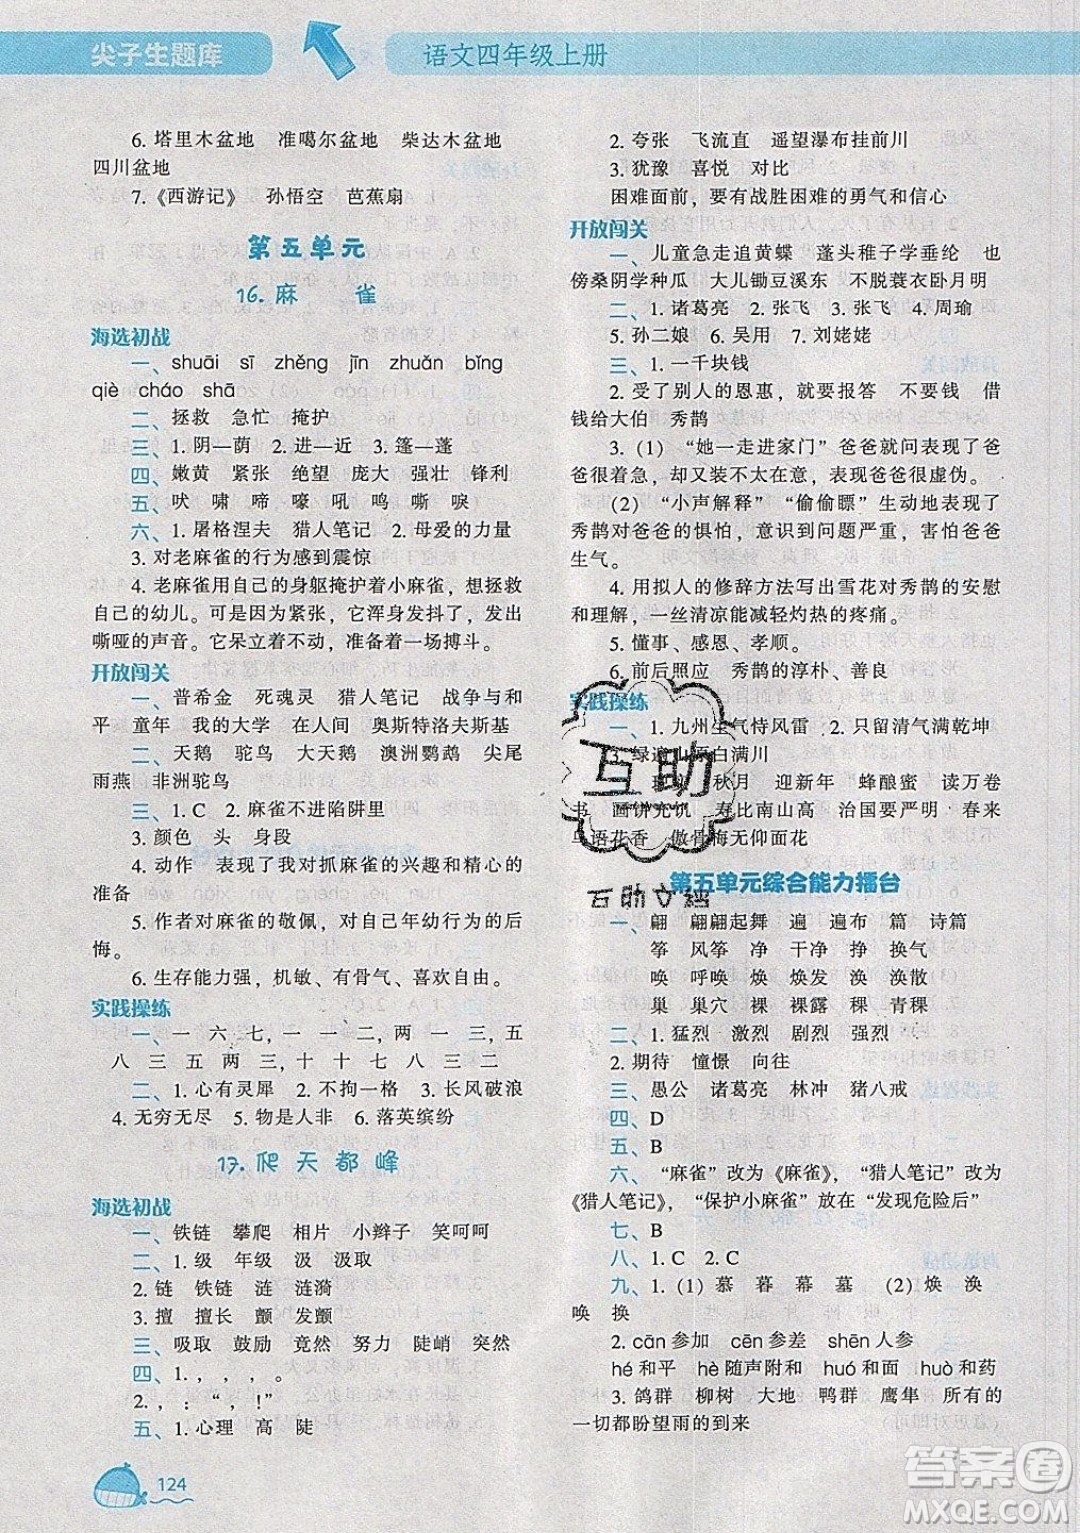 尖子生题库
语文四年级上册
6. 塔里木盆地 准噶尔盆地 柴达木盆地
四川盆地
7.《西游记》 孙悟空 芭蕉扇
第五单元
16. 麻 雀
海选初战
一、shuāi sī zhěng jīn zhuǎn bǐng
qiè cháo shā
二、拯救 急忙 掩护
三、1. 阴—荫 2. 进—近 3. 篷—蓬
四、嫩黄 紧张 绝望 庞大 强壮 锋利
五、吠 啸 啼 嚎 吼 鸣 嘶 唳
六、1. 屠格涅夫 猎人笔记 2. 母爱的力量
3. 对老麻雀的行为感到震惊
4. 老麻雀用自己的身躯掩护着小麻雀，想拯救
自己的幼儿。可是因为紧张，它浑身发抖了，发出
嘶哑的声音。它呆立着不动，准备着一场搏斗。
开放闯关
一、普希金 死魂灵 猎人笔记 战争与和
平 童年 我的大学 在人间 奥斯特洛夫斯基
二、天鹅 鸵鸟 大天鹅 澳洲鹦鹉 尖尾
雨燕 非洲鸵鸟
三、1. C 2. 麻雀不进陷阱里
3. 颜色 头 身段
4. 动作 表现了我对抓麻雀的兴趣和精心的
准备
5. 作者对麻雀的敬佩，对自己年幼行为的后
悔。
6. 生存能力强，机敏、有骨气、喜欢自由。
实践操练
一、一 六 七，一 一 二，两 一 三，五
八 三 五 两 三，十 十 七 八 三 二
二、1. 心有灵犀 2. 不拘一格 3. 长风破浪
4. 无穷无尽 5. 物是人非 6. 落英缤纷
17. 爬天都峰
海选初战
一、铁链 攀爬 相片 小辫子 笑呵呵
二、1. 级 年级 汲 汲取
2. 链 铁链 涟 涟漪
3. 擅 擅长 颤 发颤
三、吸取 鼓励 竟然 努力 陡峭 突然
四、1.，、，。
2.，：“，！”
五、1. 心理 高 陡
2. 夸张 飞流直 遥望瀑布挂前川
3. 犹豫 喜悦 对比
困难面前，要有战胜困难的勇气和信心
开放闯关
一、儿童急走追黄蝶 蓬头稚子学垂纶 也
傍桑阴学种瓜 大儿锄豆溪东 不脱蓑衣卧月明
二、1. 诸葛亮 2. 张飞 3. 张飞 4. 周瑜
5. 孙二娘 6. 吴用 7. 刘姥姥
三、1. 一千块钱
2. 受了别人的恩惠，就要报答 不要钱 借
钱给大伯 秀鹊
3. (1) “她一走进家门”爸爸就问表现了爸
爸很着急，却又装不太在意，表现爸爸很虚伪。
(2) “小声解释”“偷偷瞟”生动地表现了
秀鹊对爸爸的惧怕，意识到问题严重，害怕爸爸
生气。
4. 用拟人的修辞方法写出雪花对秀鹊的安慰
和理解，一丝清凉能减轻灼热的疼痛。
5. 懂事、感恩、孝顺。
6. 前后照应 秀鹊的淳朴、善良
实践操练
一、1. 九州生气恃风雷 2. 只留清气满乾坤
3. 绿遍山原白满川
秋月 迎新年 蜂酿蜜 读万卷
书 画饼充饥 寿比南山高 治国要严明·春来
鸟语花香 傲骨梅无仰面花
第五单元综合能力擂台
一、翩 翩翩起舞 遍 遍布 篇 诗篇
筝 风筝 净 干净 挣 挣
唤 呼唤 焕 焕发 涣 涣散
巢 巢穴 裸 裸露 稞 青稞
二、1. 猛烈 激烈 剧烈 强烈
2. 期待 憧憬 向往
三、愚公 诸葛亮 林冲 猪八戒
四、D
五、B
六、“麻雀”改为《麻雀》，“猎人笔记”改为
《猎人笔记》，“保护小麻雀”放在“发现危险后”
七、B
八、1. C 2. C
九、1. (1) 慕 暮 幕 墓 (2) 焕 涣
唤 换
2. cān 参加 cēn 参差 shēn 人参
hé 和平 hè 随声附和 huó 和面 huò 和药
3. 鸽群 柳树 大地 鸭群 鹰隼 所有的
一切都盼望雨的到来
124
互助
百助文档
答案圈
MXQE.COM